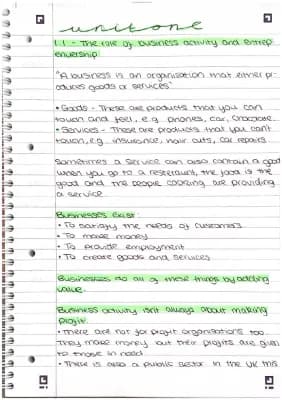 unit one
1.1 - The role of business activity and entrep
enuership
"A business is an organisation that either pr
oduces goods or services"
• Goods - These are products that you can
touch and feel, e.g. phones, car, chocolate.
• Services - These are products that you can't
touch, e.g. insurance, hair cuts, car repairs
Sometimes a service can also contain a good
when you go to a restaurant, the food is the
good and the people cooking are providing
a service
Businesses exist:
• To satisfy the needs of customers
• To make money
• To provide employment
• To create goods and services
Businesses do all of these things by adding
value.
Business activity isn't always about making
profit.
• There are not for profit organisations too.
They make money but their profits are given
to those in need
• There is also a public sector in the UK this